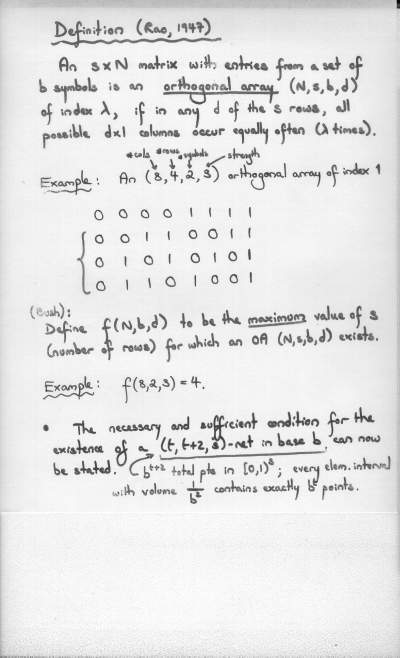 Definition (Rao, 1947)
An s×N matrix with entries from a set of
b symbols is an orthogonal array (N,s,b,d)
of index λ, if in any d of the s rows, all
possible d×1 columns occur equally often (λ times).
#cols #rows #symbols strength
Example: An (8,4,2,3) orthogonal array of index 1
0 0 0 0 1 1 1 1
0 0 1 1 0 0 1 1
0 1 0 1 0 1 0 1
0 1 1 0 1 0 0 1
(Bush):
Define f(N,b,d) to be the maximum value of s
(number of rows) for which an OA (N,s,b,d) exists.
Example: f(8,2,3) = 4.
• The necessary and sufficient condition for the
existence of a (t, t+2, s)-net in base b, can now
be stated. b^{t+2} total pts in [0,1)^s; every elem. interval
with volume 1/b² contains exactly b^t points.